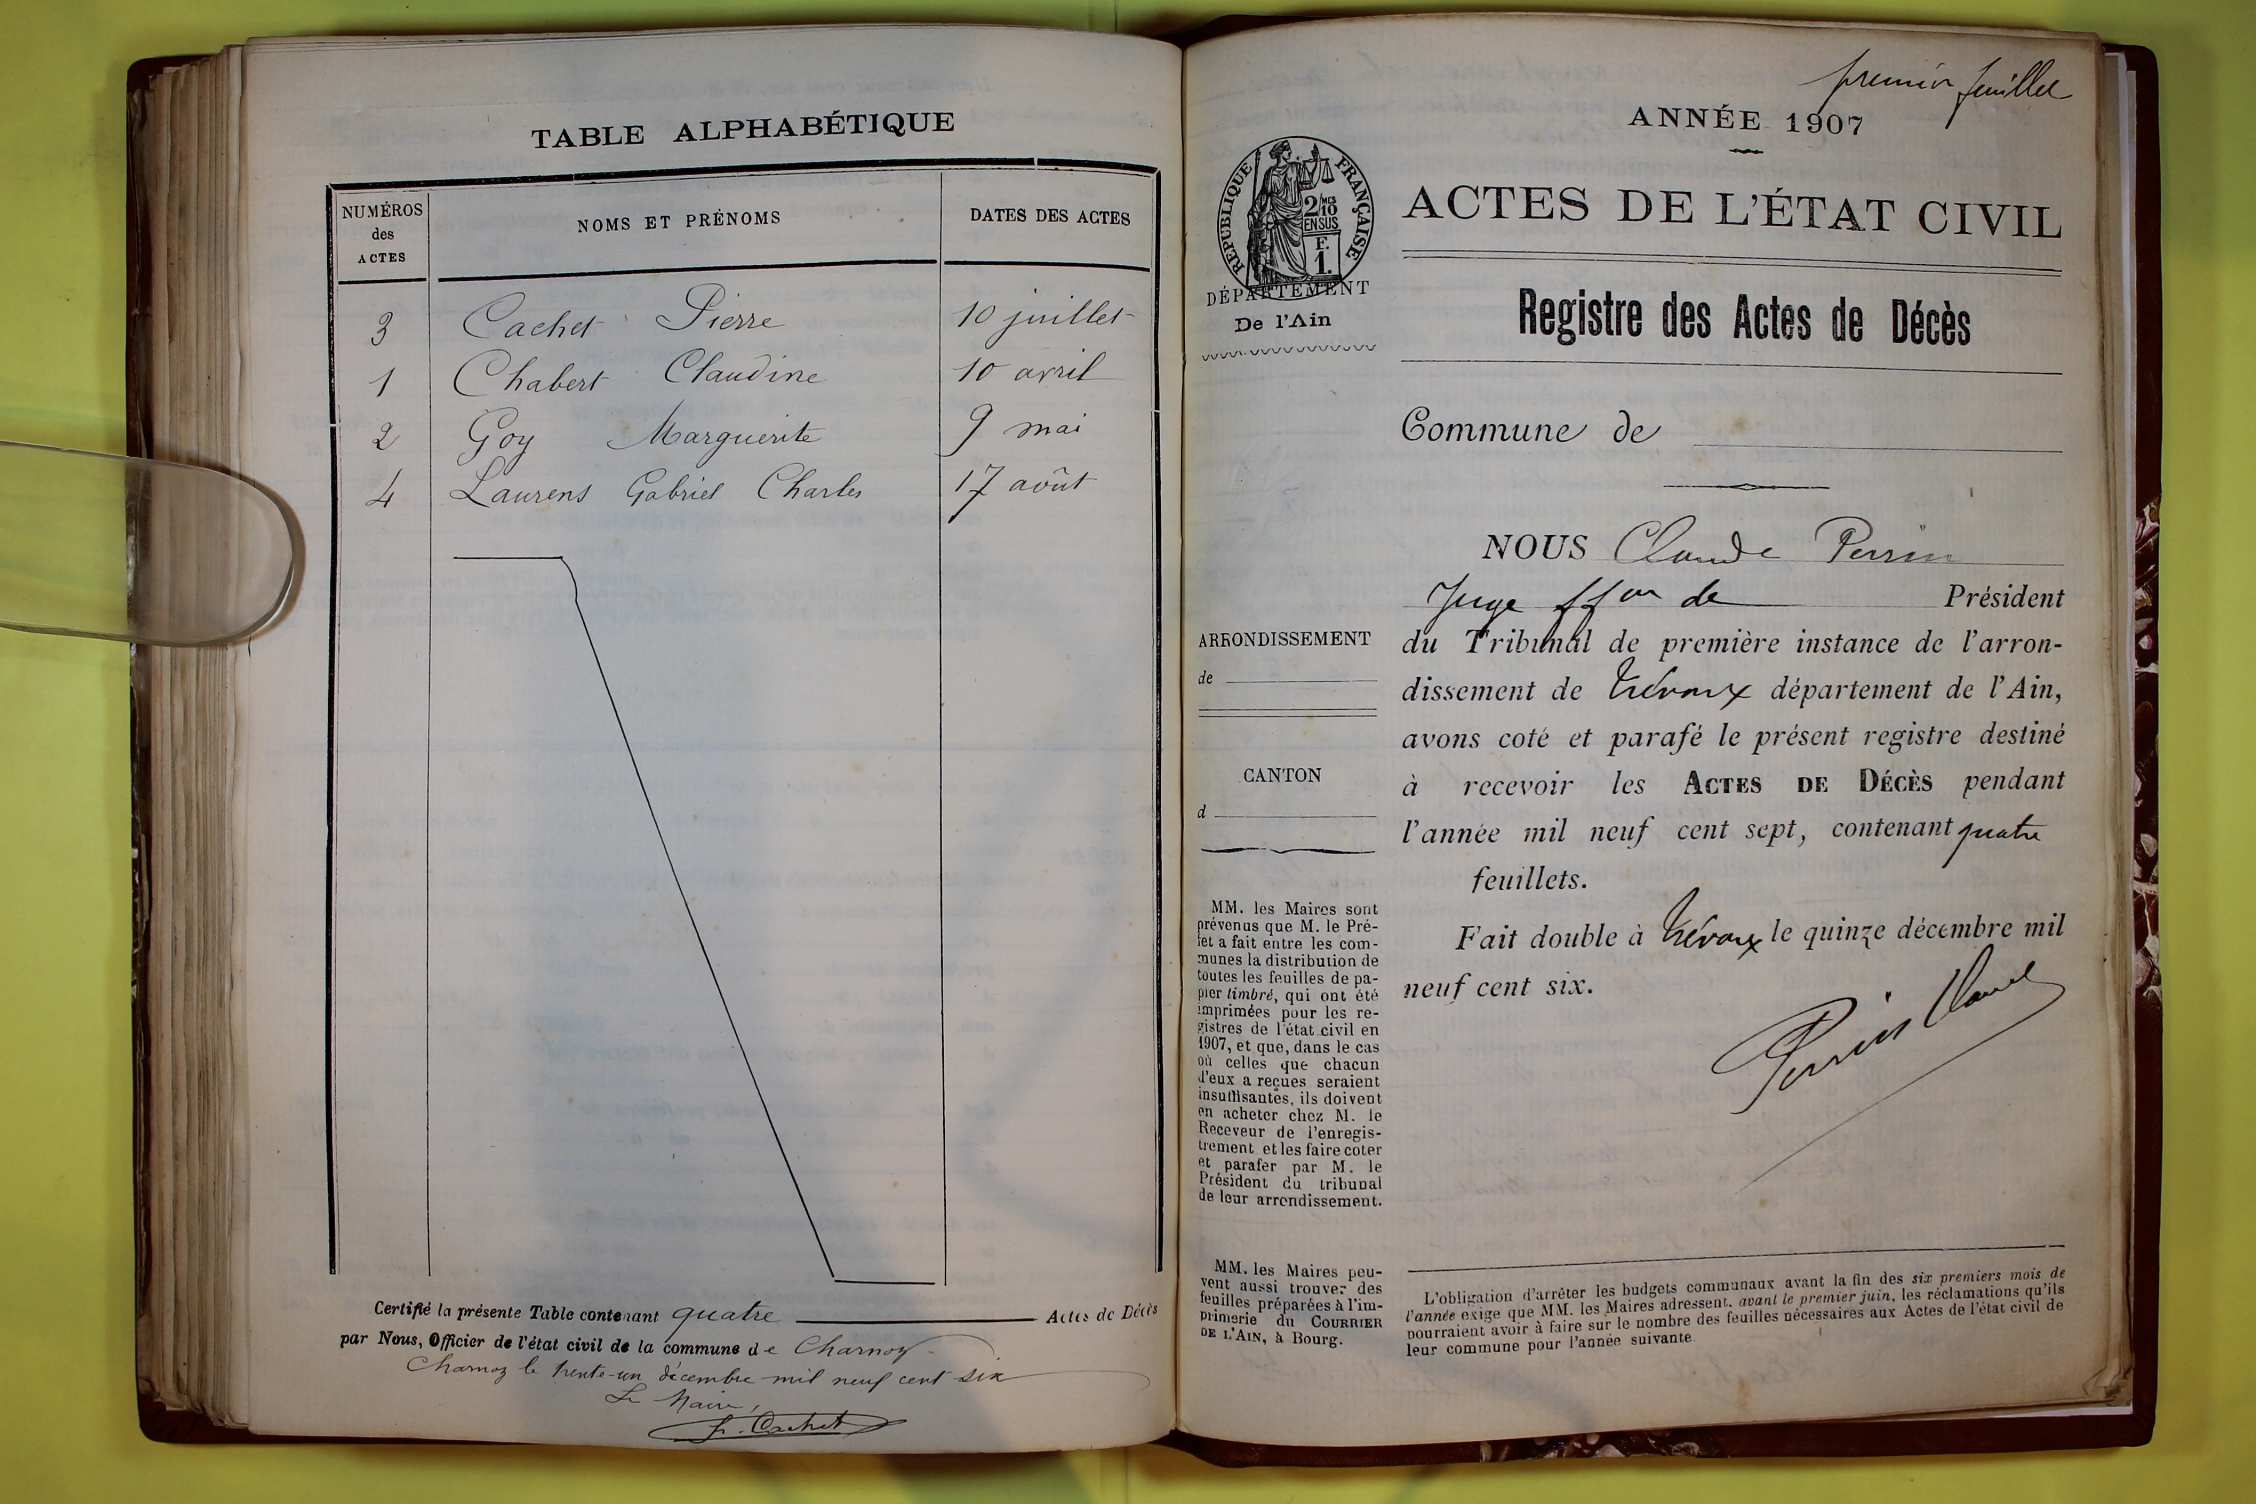 TABLE ALPHABÉTIQUE
NUMÉROS
des
ACTES
NOMS ET PRÉNOMS
DATES DES ACTES
3 Cachet Pierre 10 juillet
1 Chabert Claudine 10 avril
2 Goy Marguerite 9 mai
4 Laurens Gabriel Charles 17 août
Certifié la présente Table contenant quatre Actes de Décès
par Nous, Officier de l'état civil de la commune de Charnoz
Charnoz le trente-un décembre mil neuf cent six
Le Maire,
Cachet
premier feuillet
ANNÉE 1907
RÉPUBLIQUE FRANÇAISE
2/10 MES
EN SUS
F.
1.
DÉPARTEMENT
De l'Ain
ACTES DE L'ÉTAT CIVIL
Registre des Actes de Décès
Commune de
NOUS Claude Perrin
Juge ffon de Président
du Tribunal de première instance de l'arron-
dissement de Trévoux département de l'Ain,
avons coté et parafé le présent registre destiné
à recevoir les ACTES DE DÉCÈS pendant
l'année mil neuf cent sept, contenant quatre
feuillets.
Fait double à Trévoux le quinze décembre mil
neuf cent six.
Perrin Claude
ARRONDISSEMENT
de
CANTON
d
MM. les Maires sont
prévenus que M. le Pré-
fet a fait entre les com-
munes la distribution de
toutes les feuilles de pa-
pier timbré, qui ont été
imprimées pour les re-
gistres de l'état civil en
1907, et que, dans le cas
où celles que chacun
d'eux a reçues seraient
insuffisantes, ils doivent
en acheter chez M. le
Receveur de l'enregis-
trement et les faire coter
et parafer par M. le
Président du tribunal
de leur arrondissement.
MM. les Maires peu-
vent aussi trouver des
feuilles préparées à l'im-
primerie du COURRIER
DE L'AIN, à Bourg.
L'obligation d'arrêter les budgets communaux avant la fin des six premiers mois de
l'année exige que MM. les Maires adressent, avant le premier juin, les réclamations qu'ils
pourraient avoir à faire sur le nombre des feuilles nécessaires aux Actes de l'état civil de
leur commune pour l'année suivante